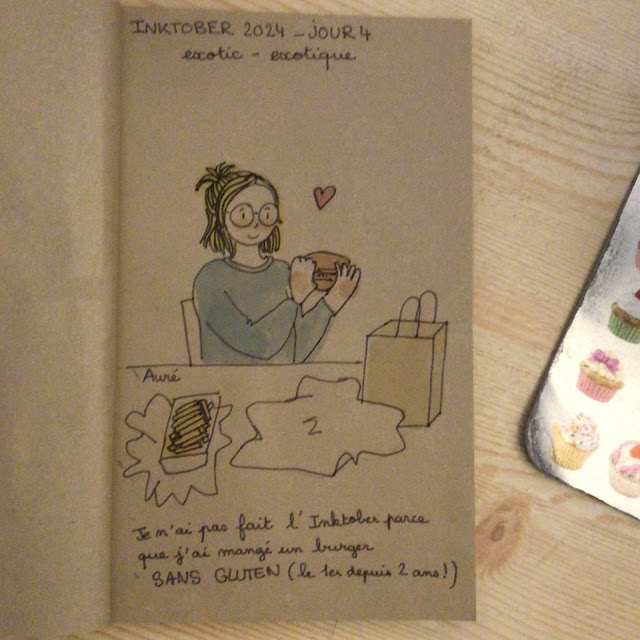 INKTOBER 2024 - JOUR 4
exotic - exotique
Auré
2
Je n'ai pas fait l'Inktober parce
que j'ai mangé un burger
SANS GLUTEN (le 1er depuis 2 ans!)